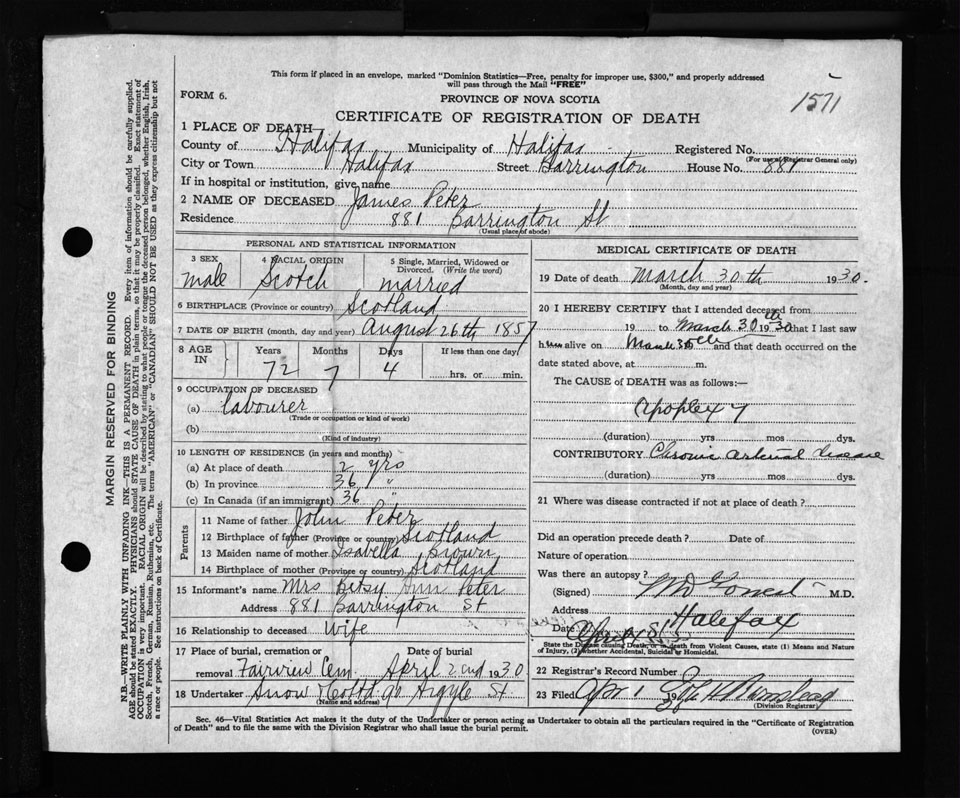 This form if placed in an envelope, marked "Dominion Statistics—Free, penalty for improper use, $300," and properly addressed
will pass through the Mail "FREE"
FORM 6.
PROVINCE OF NOVA SCOTIA
1571
CERTIFICATE OF REGISTRATION OF DEATH
1 PLACE OF DEATH
County of Halifax Municipality of Halifax Registered No.
(For use of Registrar General only)
City or Town Halifax Street Barrington House No. 881
If in hospital or institution, give name
2 NAME OF DECEASED James Peter
Residence 881 Barrington St
(Usual place of abode)
PERSONAL AND STATISTICAL INFORMATION
3 SEX male
4 RACIAL ORIGIN Scotch
5 Single, Married, Widowed or Divorced. (Write the word) married
6 BIRTHPLACE (Province or country) Scotland
7 DATE OF BIRTH (month, day and year) August 26th 1857
8 AGE IN Years Months Days If less than one day
72 7 4 hrs. or min.
9 OCCUPATION OF DECEASED
(a) labourer
(Trade or occupation or kind of work)
(b)
(Kind of industry)
10 LENGTH OF RESIDENCE (in years and months)
(a) At place of death 2 yrs
(b) In province 36 "
(c) In Canada (if an immigrant) 36 "
Parents
11 Name of father John Peter
12 Birthplace of father (Province or country) Scotland
13 Maiden name of mother Isabella Brown
14 Birthplace of mother (Province or country) Scotland
15 Informant's name Mrs Betsy Ann Peter
Address 881 Barrington St
16 Relationship to deceased wife
17 Place of burial, cremation or removal Fairview Cem. Date of burial April 2nd 1930
18 Undertaker Snow & Co Ltd 90 Argyle St
(Name and address)
MEDICAL CERTIFICATE OF DEATH
19 Date of death March 30th 1930.
(Month, day and year)
20 I HEREBY CERTIFY that I attended deceased from
19 to March 30th 1930 that I last saw
him alive on March 30th and that death occurred on the
date stated above, at m.
The CAUSE OF DEATH was as follows:—
Apoplexy
(duration) yrs mos dys.
CONTRIBUTORY Chronic arterial disease
(duration) yrs. mos. dys.
21 Where was disease contracted if not at place of death?
Did an operation precede death? Date of
Nature of operation
Was there an autopsy?
(Signed) M.D.
Address Halifax
Date
State the Disease causing Death, or in death from Violent Causes, state (1) Means and Nature
of Injury, (2) whether Accidental, Suicidal or Homicidal.
22 Registrar's Record Number
23 Filed Apr 1
(Division Registrar)
Sec. 46—Vital Statistics Act makes it the duty of the Undertaker or person acting as Undertaker to obtain all the particulars required in the "Certificate of Registration
of Death" and to file the same with the Division Registrar who shall issue the burial permit.
(OVER)
MARGIN RESERVED FOR BINDING
N.B.—WRITE PLAINLY WITH UNFADING INK—THIS IS A PERMANENT RECORD. Every item of information should be carefully supplied.
AGE should be stated EXACTLY. PHYSICIANS should STATE CAUSE OF DEATH in plain terms, so that it may be properly classified. Exact statement of
OCCUPATION is very important. RACIAL ORIGIN will be described by stating to what people or tongue the deceased person belonged, whether English, Irish,
Scotch, French, German, Russian, Ruthenian, etc. The terms "AMERICAN" or "CANADIAN" SHOULD NOT BE USED as they express citizenship but not
a race or people. See instructions on back of Certificate.